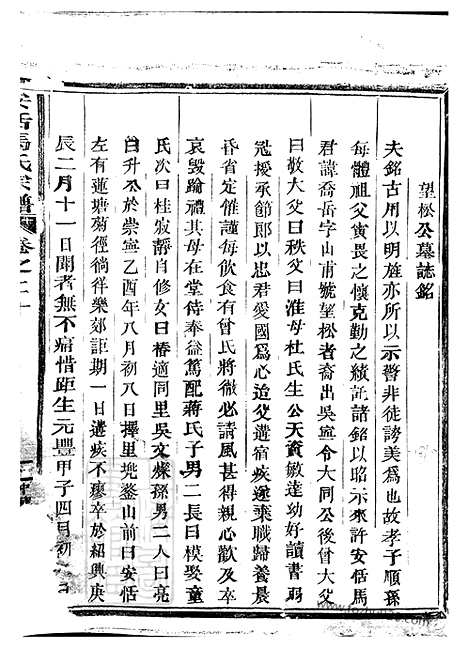 望松公墓誌銘
夫銘古用以明旌亦所以示警非徒誇美爲也故孝子順孫
每體祖父寅畏之懷克勤之績託諸銘以昭示來許安恬馬
君諱喬岳字山甫號望松者裔出吳寧令大同公後曾大父
曰敬大父曰秩父曰淮母杜氏生公天資敏達幼好讀書弱
冠授承節郎以忠君愛國爲心迨父遘宿疾遂棄職歸養晨
昏省定惟謹每飲食有曾氏將徹必請風甚得親心歡及卒
哀毀踰禮其母在堂待奉益篤配蔣氏子男二長曰模娶童
氏次曰桂寂靜自修女曰椿適同里吳文燦孫男二人曰亮
曰升公於崇寧乙酉年八月初八日擇里兠鍪山前曰安恬
左有蓮塘菊徑徜徉樂郊詎期一日遘疾不瘳卒於紹興庚
辰二月十一日聞者無不痛惜距生元豐甲子四月初
馬氏宗譜 卷之二